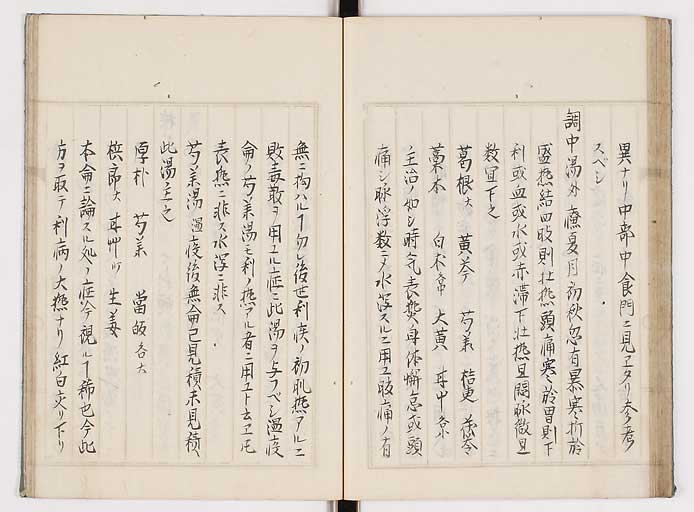 異ナリ中部中食門ニ見エタリ参考
スベシ
調中湯外療夏月初秋忽有暴寒折於
盛熱結四肢則壮熱頭痛寒於胃則下
利或血或水或赤滞下壮熱且悶脉微且
数宜下之
葛根大 黄芩 芍薬 桔更 茯苓
藁本 白朮 大黄 甘中
ノ主治ノ如シ時気表熱身体懈怠或頭
痛シ脉浮数ニテ水瀉スルニ用ユ腹痛ノ有
無ニ拘ハル丁勿レ後世利疾ノ初肌熱アルニ
敗毒散ヲ用ユル症ニ此湯ヲ与フベシ温疫
侖ノ芍薬湯モ利ノ熱アル者ニ用ユト云エ𪜈
表熱ニ非ス水瀉ニ非ス
芍薬湯 温疫後無侖已見積未見積、
此湯主之
厚朴 芍薬 當皈各大
梹郎大 甘艸 生姜
本侖ニ論スル処ノ症今視ル丁稀也今此
方ヲ取テ利病ノ大熱ナリ紅白交リ下リ